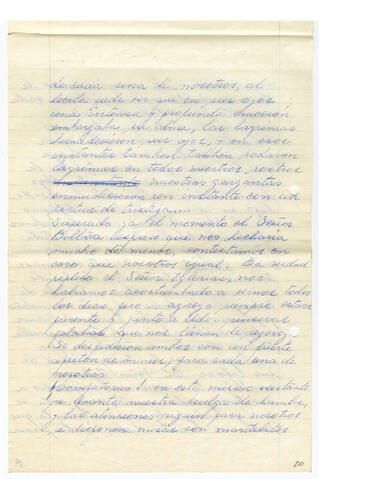 de cada una de nosotras, al
decirla pude ver que en sus ojos
una intensa y profunda emoción
embargaba su alma, las lagrimas
humedecieron sus ojos, y en esos
instantes tambien rodaron
lagrimas en todos nuestros rostros
nuestras gargantas
enmudecieron un instante con un
de tristeza....
Superado ya el momento el Señor
Balboa despues que nos hecharia
mucho de menos, contestamos en
coro que nosotras igual. La verdad
el Señor Iglesias, nos
habiamos acostumbrado a vernos todos
los dias pero agrego siempre estare
presente y junto a Uds. sinceras
palabras que nos llenan de regocijo
Se despidieron ambos con un fuerte
apreton de manos para cada una de
nosotras
Compañeras! en este mismo instante
se levanta nuestra huelga de hambre,
y las atenciones siguen para nosotras
se disponen mesas con mantelitos
20